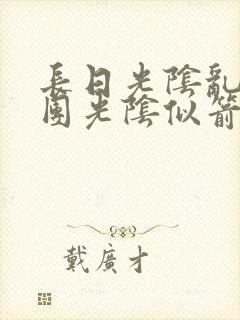 長日光陰亂
團光陰似箭
戴廣才